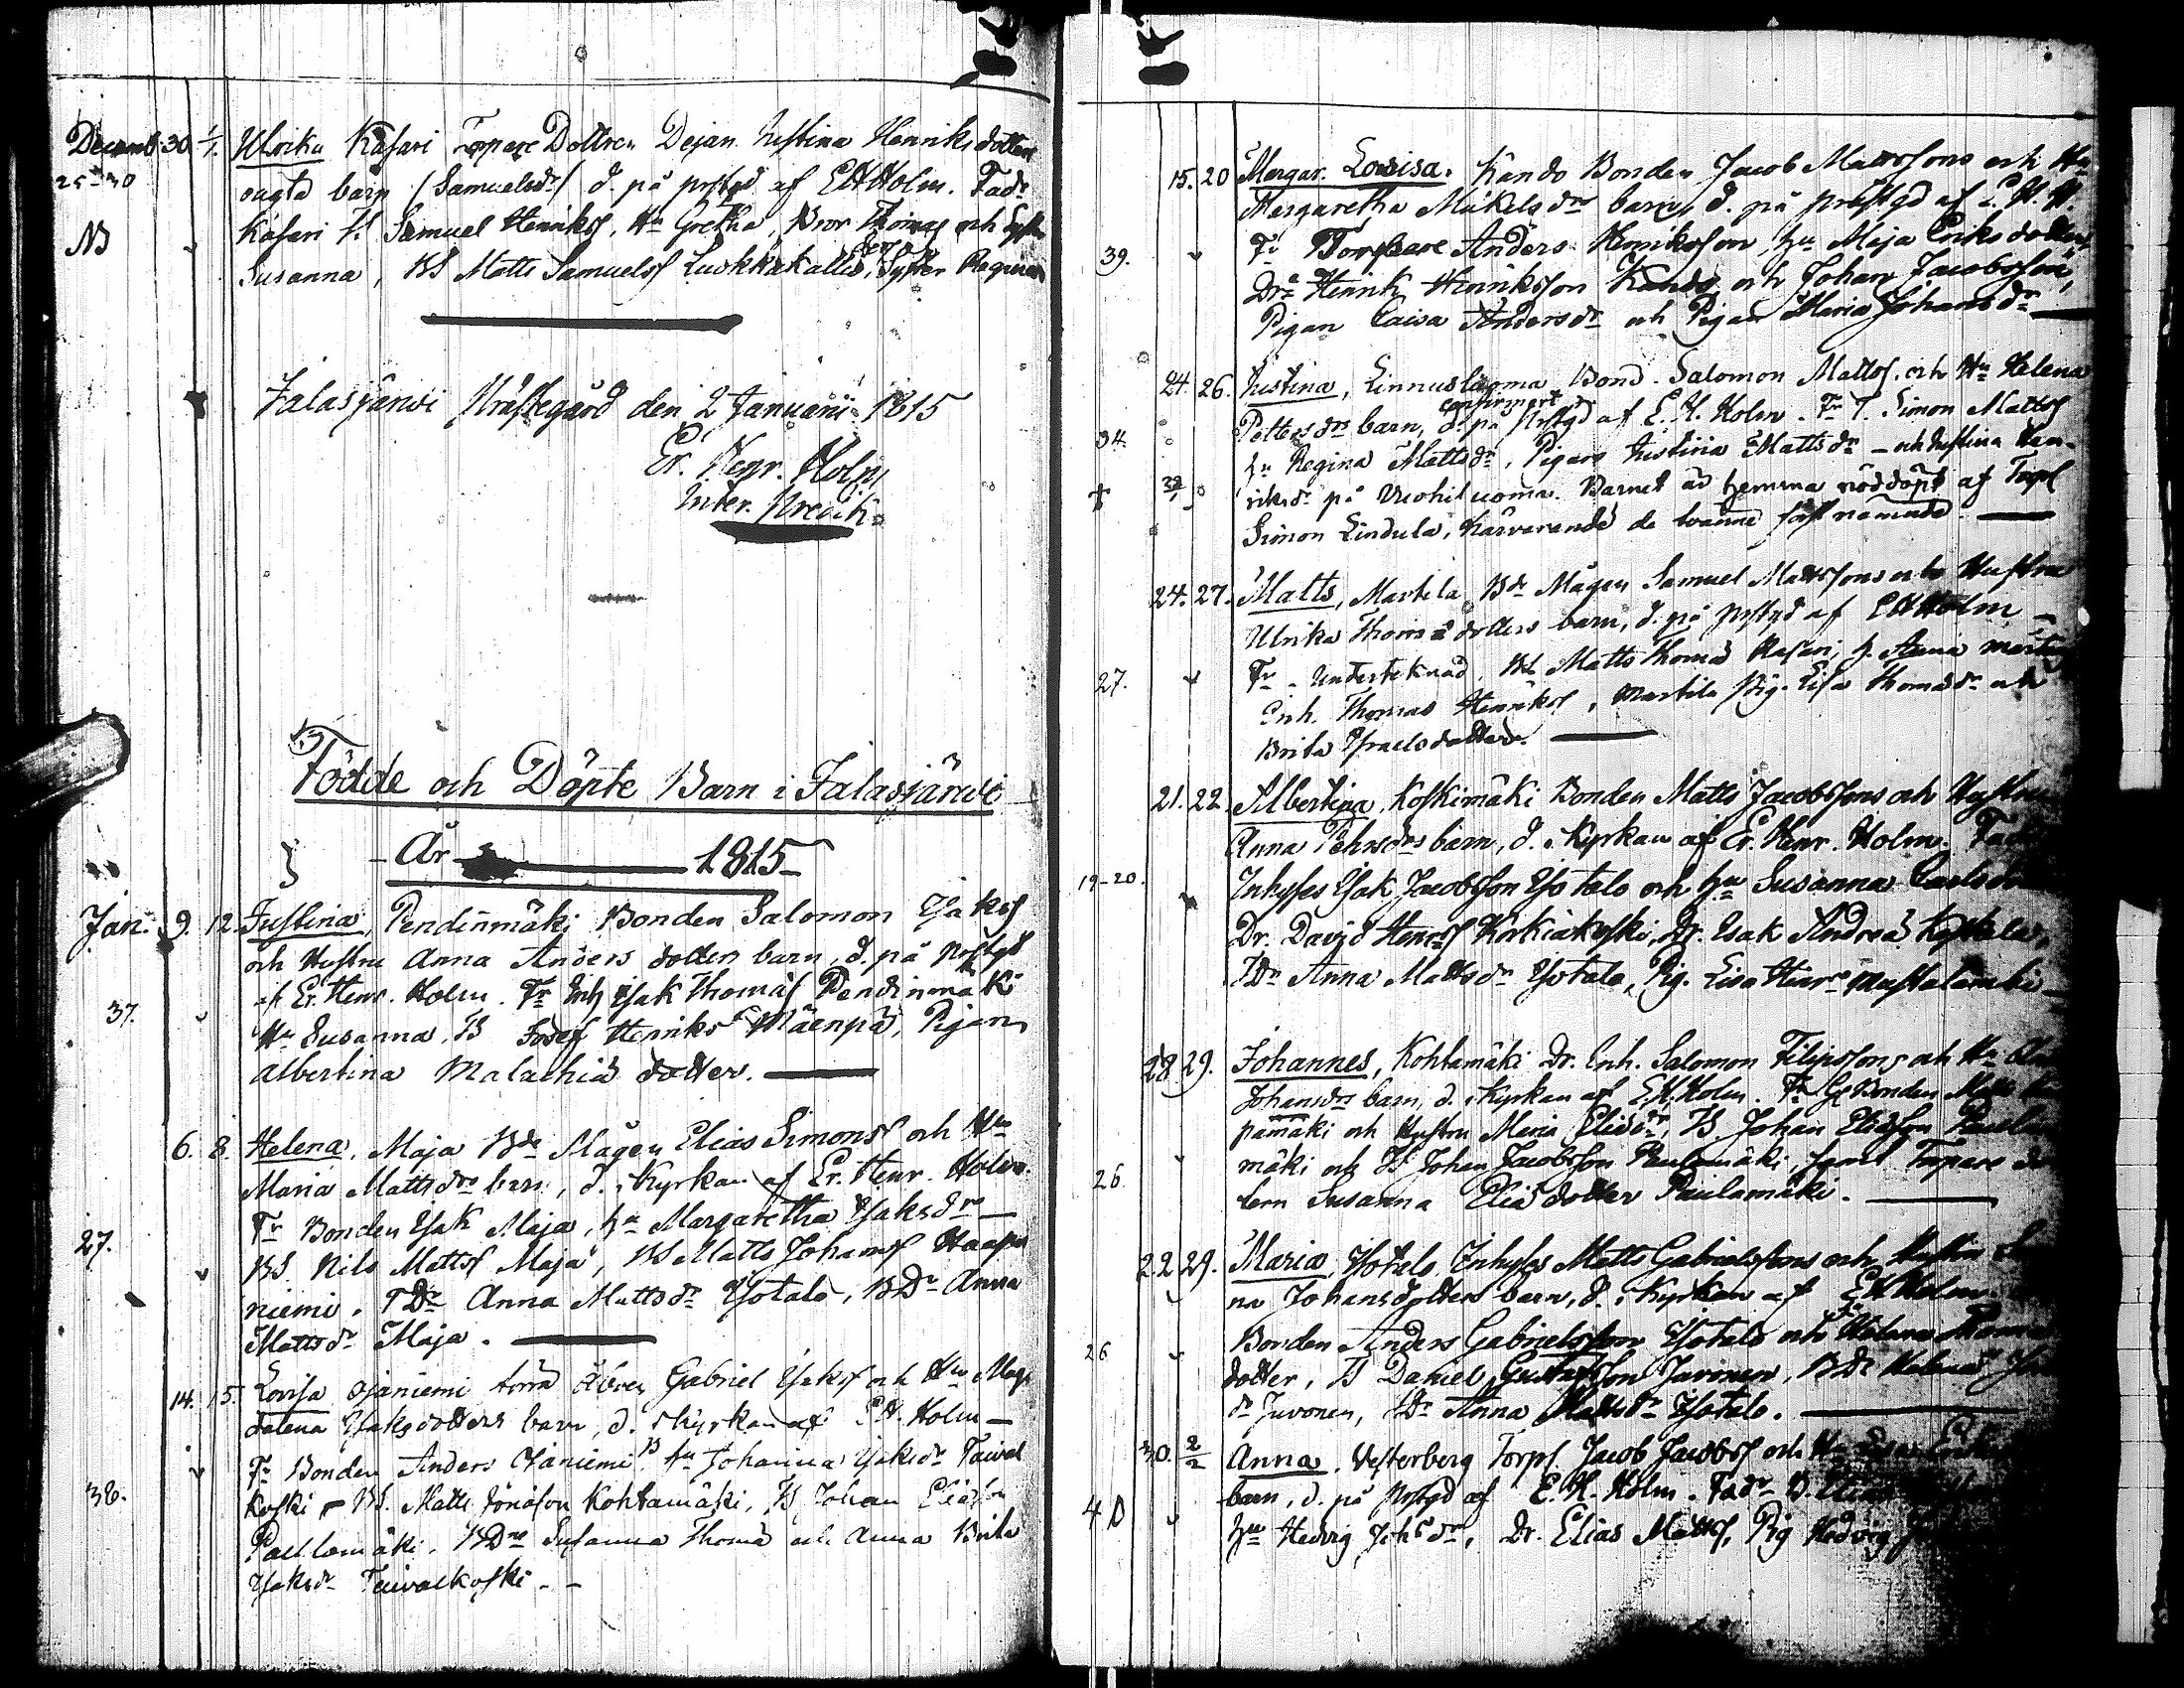 Decemb. 30 1/1. Ulrika Käfari Torpare Dottren Dejan Justina Henriks dotters
25-30
oägta barn (Samuelsdr) d. på prstgd af EHHolm. Fadr
NB Käfari T. Samuel Henriks. Hu Gretha, Bror Thomas och Syster
Susanna, BS Matts Samuelss Luokkakallio, Syster Regina
Jalasjärvi Prästegård den 2 Januarii 1815
Er. Henr. Holm
Inter. Predik.
Födde och Döpte Barn i Jalasjärwi
År 1815
Jan: 9. 12. Justina, Pendinmäki Bonden Salomon Isakss
och Hustru Anna Anders dotters barn, d. på prstgd
af Er. Henr. Holm. Fr Inh Isak Thomæs Pendinmäki
37. Hu Susanna, B Josef Henrikss Mäenpä, Pigan
Albertina Malachiæ dotter.
6. 8. Helena, Maja Bde Mågen Elias Simonss och Hus
Maria Mattsdrs barn, d. i Kyrkan af Er. Henr. Holm.
Fr Bonden Isak Maja, hu Margaretha Isaksdr
27. BS. Nils Mattss Maja, BS Matts Johanss Haapa
niemi. TDr Anna Mattsdr Ylotalo, BDr Anna
Mattsdr Maja.
14. 15. Lovisa Ojaniemi Gabriel Isakss och Hus Mag
dalena Isaksdotters barn, d. i Kyrkan af E.H. Holm
Fr Bonden Anders Ojaniemi Hu Johanna Isaksdr Taival
38. koski BS. Matts Jonæson Kohtamäki, B Johan Eliæson
Paulamäki. BDrne Susanna Thomæ och Anna Brita
Isaksdr Taivalkoski.
15. 20 Margar. Lovisa. Kando Bonden Jacob Mattssons och Hu
Margaretha Mikelsdrs barn, d. på prästgd af E. H. H.
39. Fr Torpare Anders Henriksson, hu Maja Eriksdotter,
Dre Henrik Henriksson Kando och Johan Jacobsson,
Pigan Caisa Andersdr och Pigan Maria Johansdr
24. 26. Justina, Linnusluoma Bond. Salomon Mattss. och Hu Helena
confirmert
34. Pettersdrs barn, d. på Prstgd af E. H. Holm. Fr T. Simon Mattss
hu Regina Mattsdr, Pigan Justina Mattsdr - och Justina Hen-
riksdr på Vuohiluoma. Barnet är hemma nöddöpt af Torp
Simon Lindula, närvarande de tvänne först nämnde
24. 27. Matts, Martila Bde Mågen Samuel Mattssons och Hustru
Ulrika Thomæ dotters barn, d. på prstgd af EHHolm
27. Fr Underteknad, BS Matts Thomæ Rafari, h. Anna
Inh. Thomas Henrikss, Martila Pig. Lisa Thomædr och
Brita Israelsdotter.
21. 22. Albertina, Koskimäki Bonden Matts Jacobssons och Hustru
Anna Pehrsdrs barn, d. i Kyrkan af Er. Henr. Holm. Fad
19-20. Inhyses Isak Jacobsson Ylotalo och hu Susanna Carlsdr
Dr. David Henrss Körkiäkoski, Dr. Esak Andreæ Koskela,
TDr Anna Mattsdr Ylotalo, Pig. Lisa Henr
28 29. Johannes, Kohtamäki Dr. Inh. Salomon Filipssons och Hu
Johansdrs barn, d. i Kyrkan af E.H.Holm. Fr Bonden Matts
pämäki och Hustru Maria Eliædr, B Johan Eliæson Paula
26. mäki och B Johan Jacobsson Paulamäki, samt Torpare do
tern Susanna Eliædotter Paulamäki.
22 29. Maria, Ylotalo Inhyses Matts Gabrielssons och Hustru
na Johansdotters barn, d. i Kyrkan af EHHolm
26 Bonden Anders Gabrielsson Ylotalo och Hu Helena Thomæ
dotter, B Daniel Gustafsson Juvonen, BDr Helena
dr Juvonen, TDr Anna Mattsdr Ylotalo.
30. 2/2 Anna. Westerberg Torps. Jacob Jacobss och Hu
40 barn, d. på prstgd af E. H. Holm. Fadr B. Elias
hu Hedvig Johsdr, Dr. Elias Mattss, Pig Hedvig